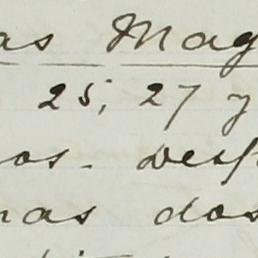 as Mag
25, 27 y
os. Desp
nas dos